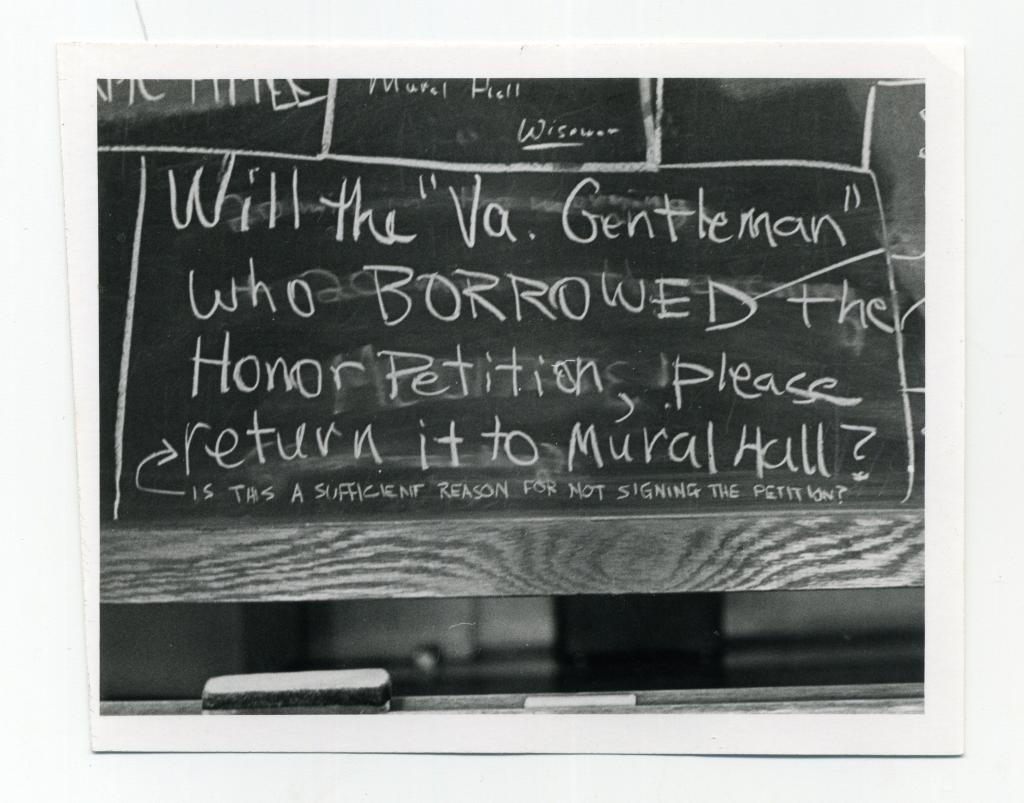 Mural Hall
Wiseman
Will the "Va. Gentleman"
who BORROWED the
Honor Petition, please
return it to Mural Hall?
IS THIS A SUFFICIENT REASON FOR NOT SIGNING THE PETITION?